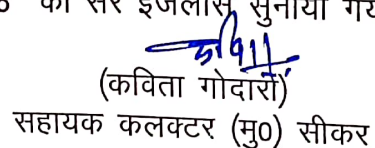 को सरे इजलास सुनाया गय
(कविता गोदारा)
सहायक कलक्टर (मु0) सीकर